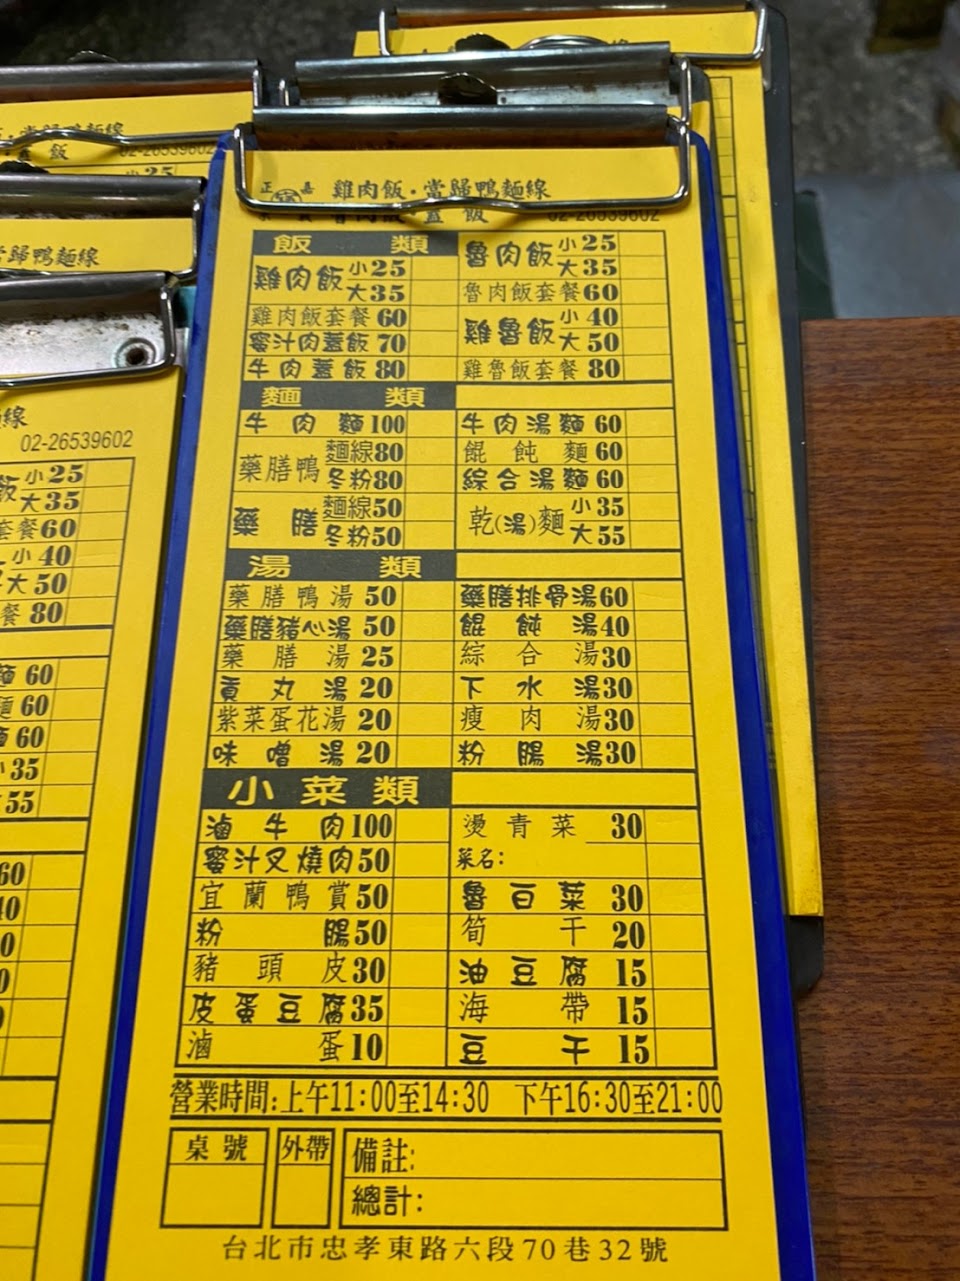 正 嘉 雞肉飯·當歸鴨麵線
02-26539602
飯 類
雞肉飯 小25
大35
雞肉飯套餐 60
蜜汁肉蓋飯 70
牛肉蓋飯 80
魯肉飯 小25
大35
魯肉飯套餐60
雞魯飯 小 40
大 50
雞魯飯套餐 80
麵 類
牛肉麵100
藥膳鴨 麵線80
冬粉80
藥膳 麵線50
冬粉50
牛肉湯麵 60
餛飩麵 60
綜合湯麵 60
乾(湯)麵 小 35
大 55
湯 類
藥膳鴨湯 50
藥膳豬心湯 50
藥膳湯 25
貢丸湯 20
紫菜蛋花湯 20
味噌湯 20
藥膳排骨湯60
餛飩湯40
綜合湯30
下水湯30
瘦肉湯30
粉腸湯30
小菜類
滷牛肉100
蜜汁叉燒肉50
宜蘭鴨賞50
粉腸50
豬頭皮30
皮蛋豆腐35
滷蛋10
燙青菜 30
菜名:
魯白菜 30
筍干 20
油豆腐 15
海帶 15
豆干 15
營業時間:上午11:00至14:30 下午16:30至21:00
桌號
外帶
備註:
總計:
台北市忠孝東路六段70巷32號
當歸鴨麵線
02-26539602
飯 小25
大35
套餐60
小 40
大 50
餐 80
麵 60
麵 60
麵 60
小35
55
60